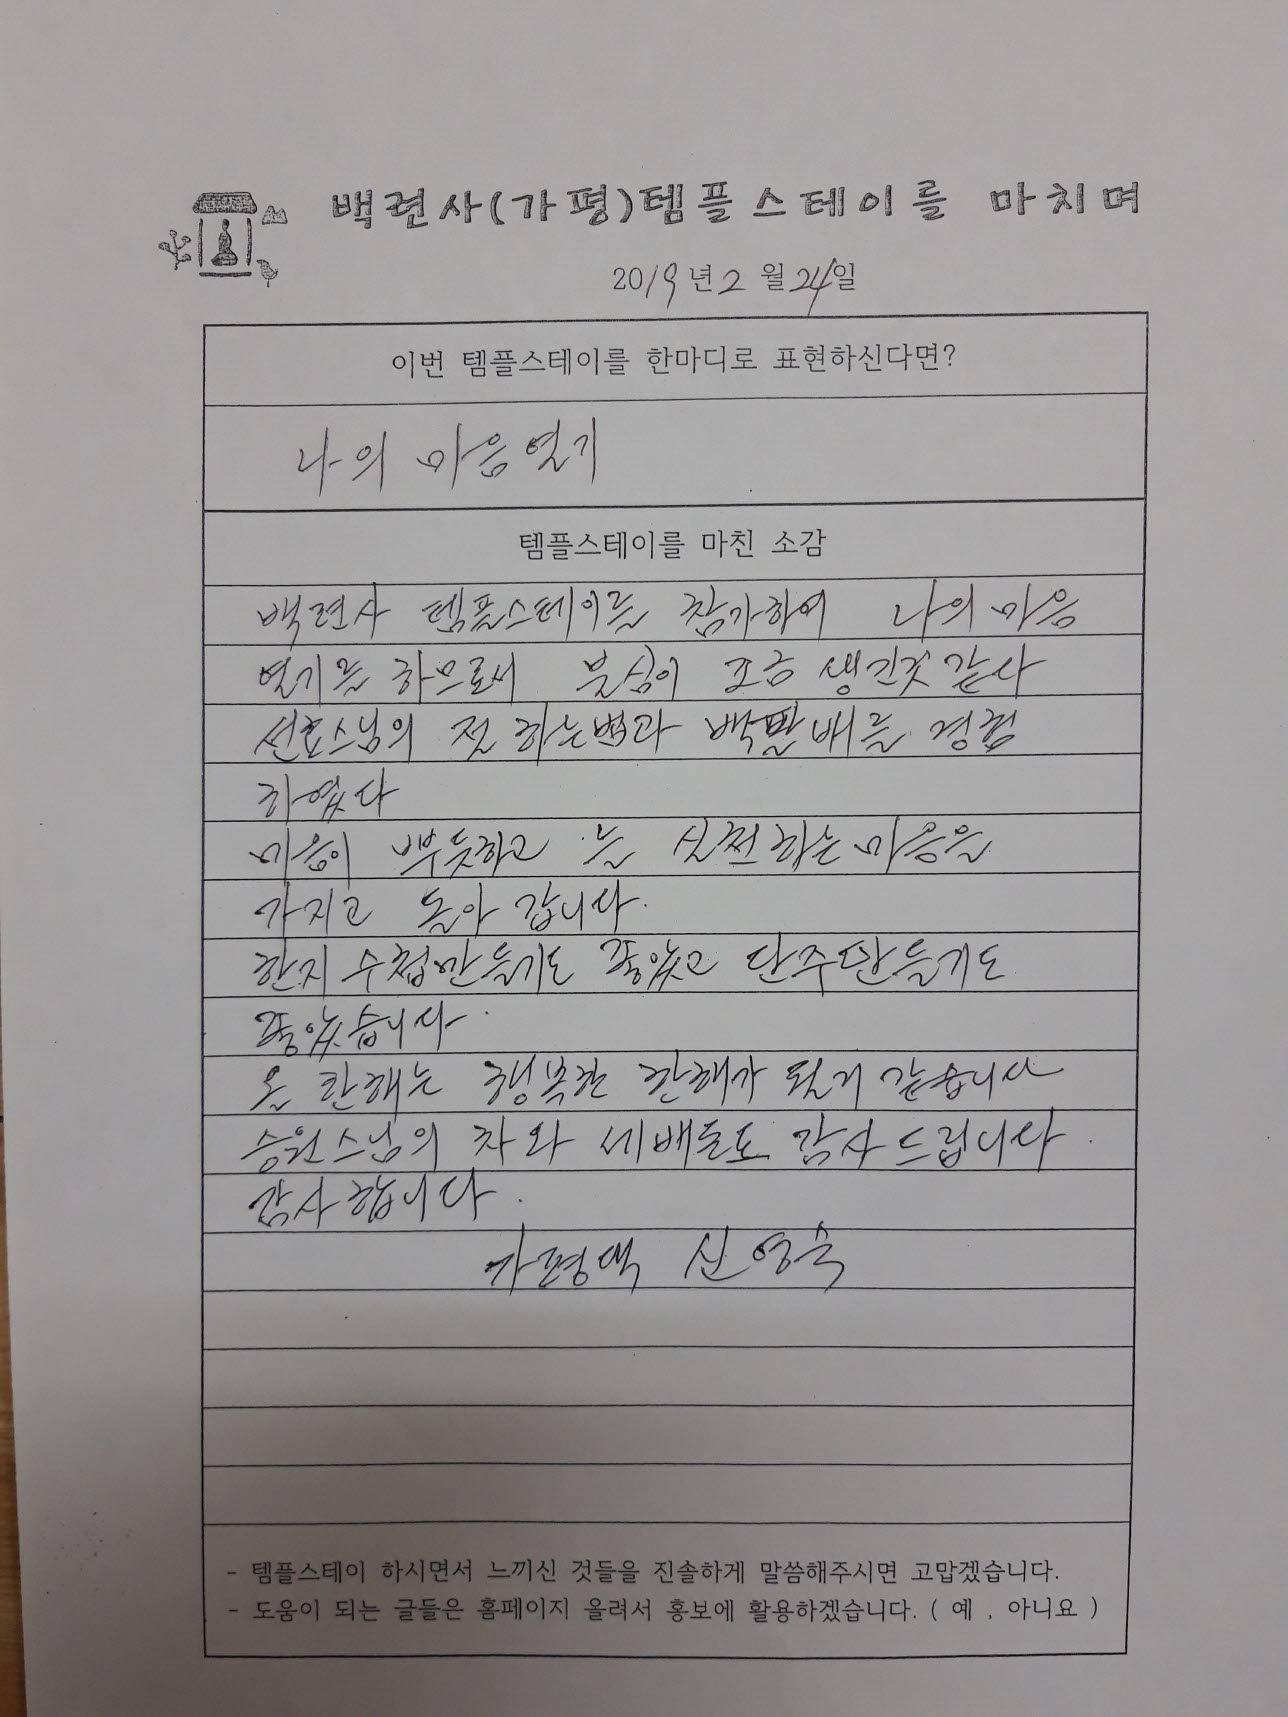 백련사(가평)템플스테이를 마치며
2019년 2월 24일
이번 템플스테이를 한마디로 표현하신다면?
나의 마음열기
템플스테이를 마친 소감
백련사 템플스테이를 참가하여 나의 마음
열기를 하므로서 불심이 조금 생긴것 같다
선효스님의 절 하는법과 백팔배를 경험
하였다
마음이 뿌듯하고 늘 실천하는 마음을
가지고 돌아 갑니다.
한지 수첩만들기도 좋았고 단주만들기도
좋았습니다.
올 한해는 행복한 한해가 될거 같습니다
승원스님의 차와 세배돈도 감사드립니다.
감사합니다.
가평댁 신영숙
- 템플스테이 하시면서 느끼신 것들을 진솔하게 말씀해주시면 고맙겠습니다.
- 도움이 되는 글들은 홈페이지 올려서 홍보에 활용하겠습니다. ( 예 , 아니요 )